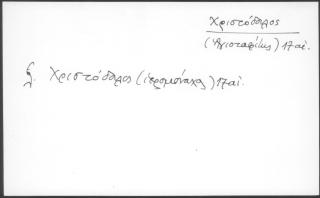 Χριστόδουλος
(Ἁγιοταφίτης) 17 αἰ.
Χριστόδουλος (ἱερομόναχος) 17 αἰ.